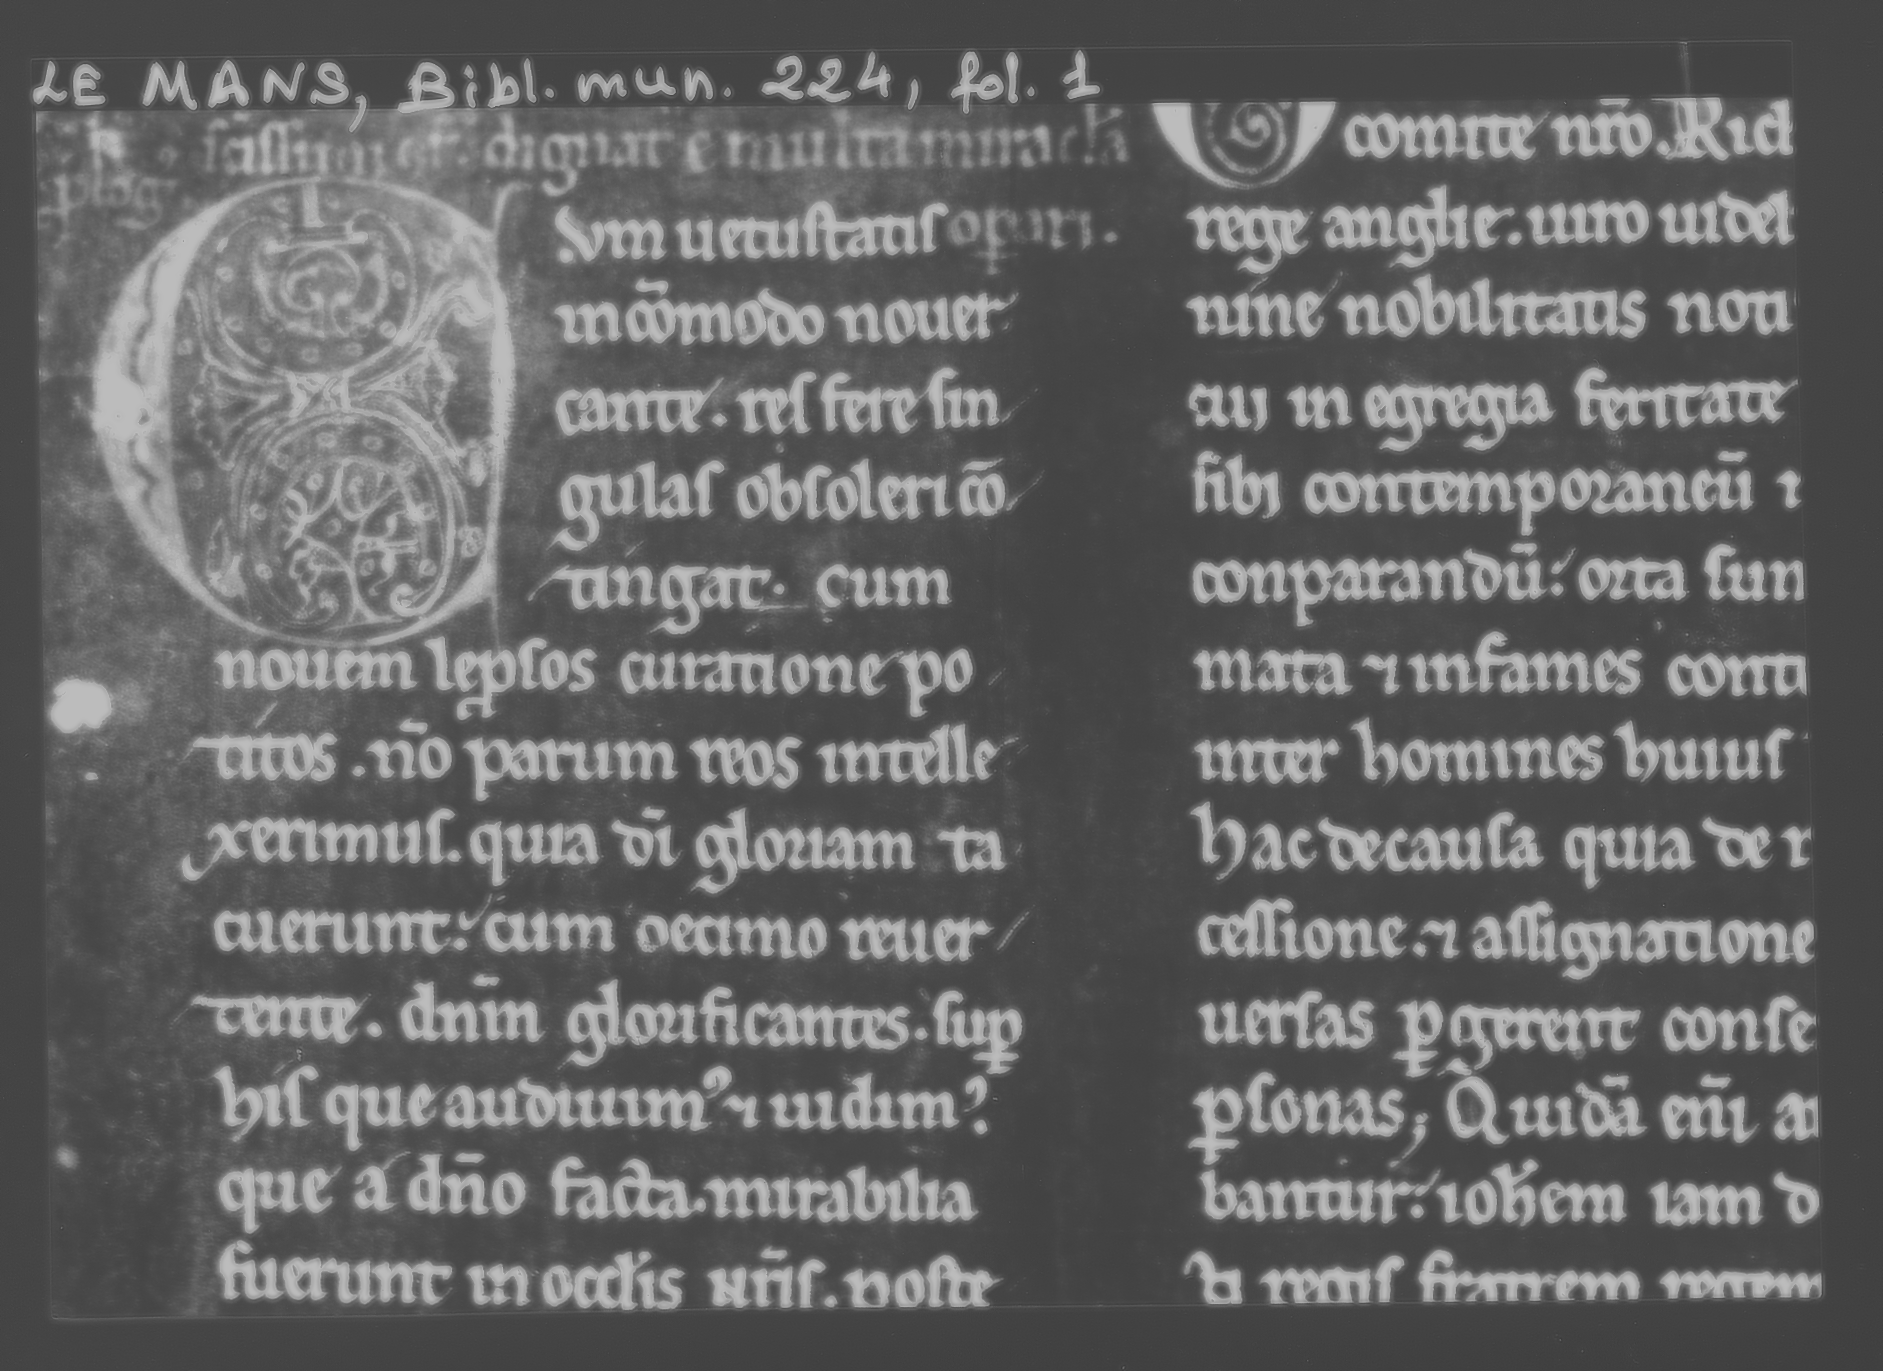 LE MANS, Bibl. mun. 224, fol. 1
dignat᷑ e multa miracl̃a
plog
.vm uetustatis opari.
incõmodo nouer
cante. res fere sin
gulas obsoleri cõ
tingat. cum
nouem lep̱sos curatione po
titos .nõ parum reos intelle
xerimus. quia dĩ gloriam ta
cuerunt: cum decimo reuer
tente. dñm glorificantes. sup̱
his que audiuim᷒ ⁊ uidim᷒.
que a dño facta. mirabilia
fuerunt in occl̃is nr̃is. poste
comite nr̃o. Rich
rege anglie. uiro uidel
nine nobilitatis noti
cuj in egregia feritate
sibj contemporaneũ i
conparandũ: orta sun
mata ⁊ infames conti
inter homines huius
Hac de causa quia de r
cessione. ⁊ assignatione
uersas ꝑgerent conse
ꝑsonas; Quidã eñi ar
bantur: ioh̃em iam d
ti regis fratrem regem